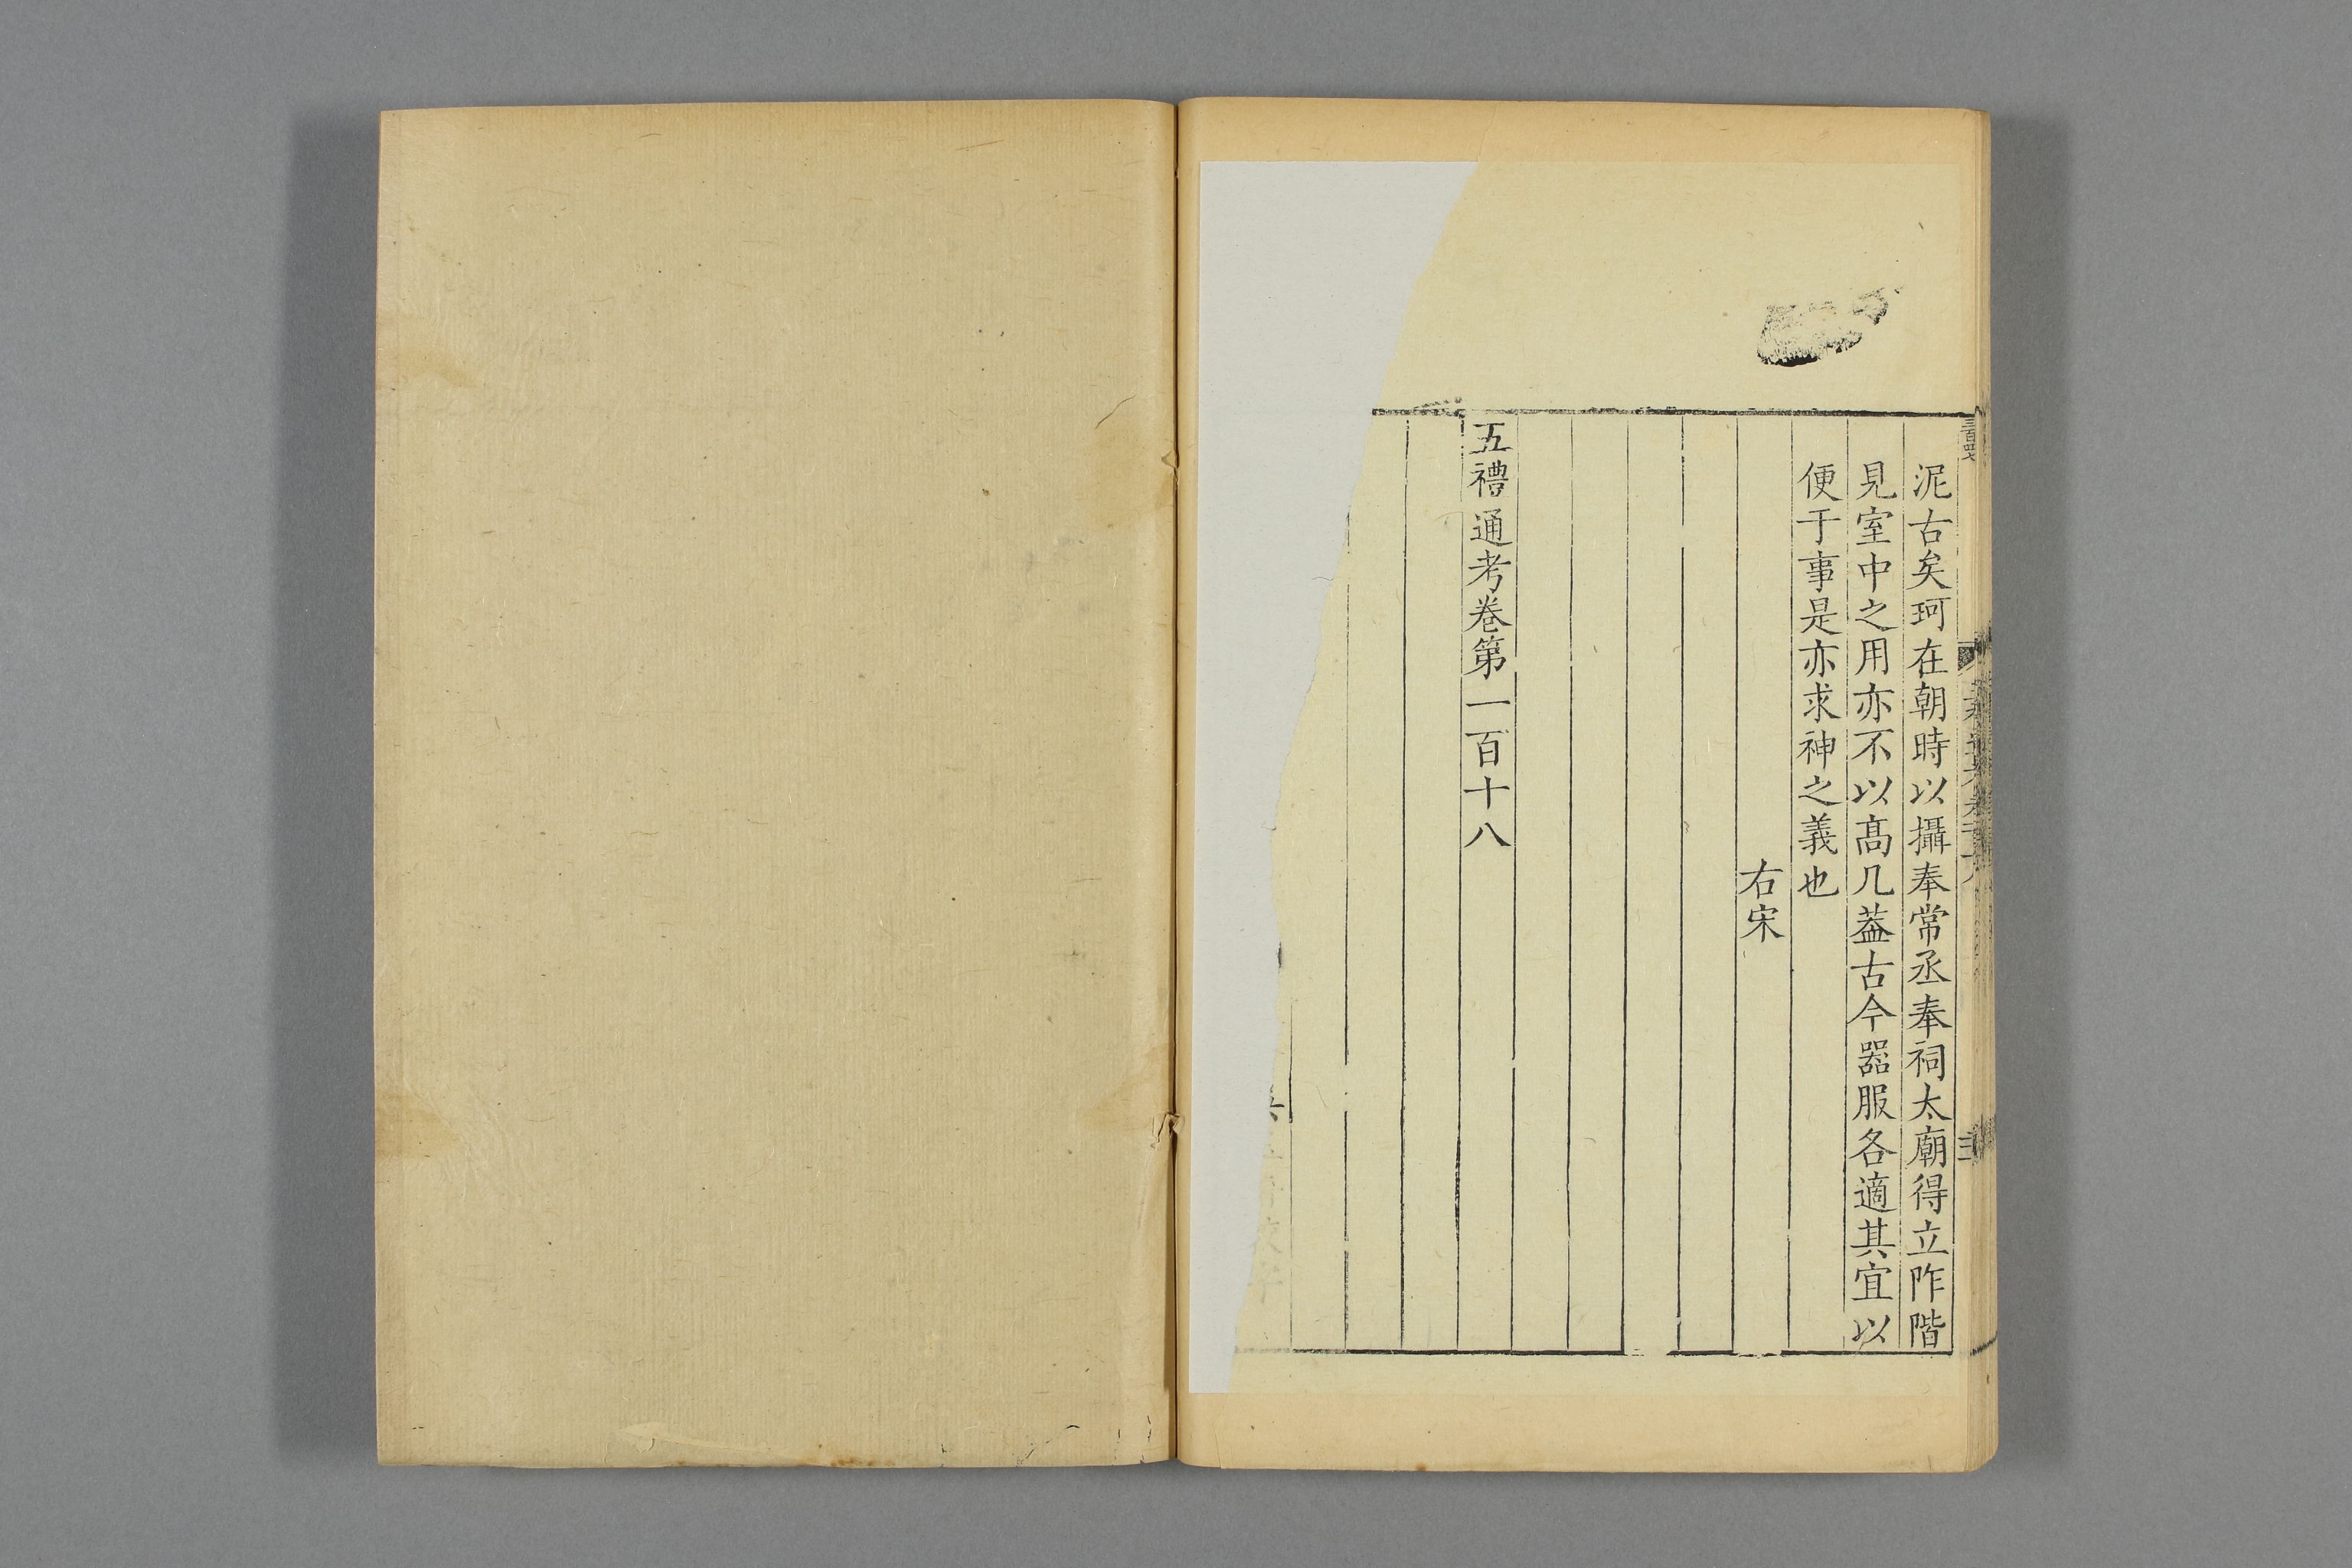 泥古矣珂在朝時以攝奉常丞奉祠太廟得立阼階
見室中之用亦不以髙几葢古今器服各適其宜以
便于事是亦求神之義也
右宋
五禮通考卷第一百十八